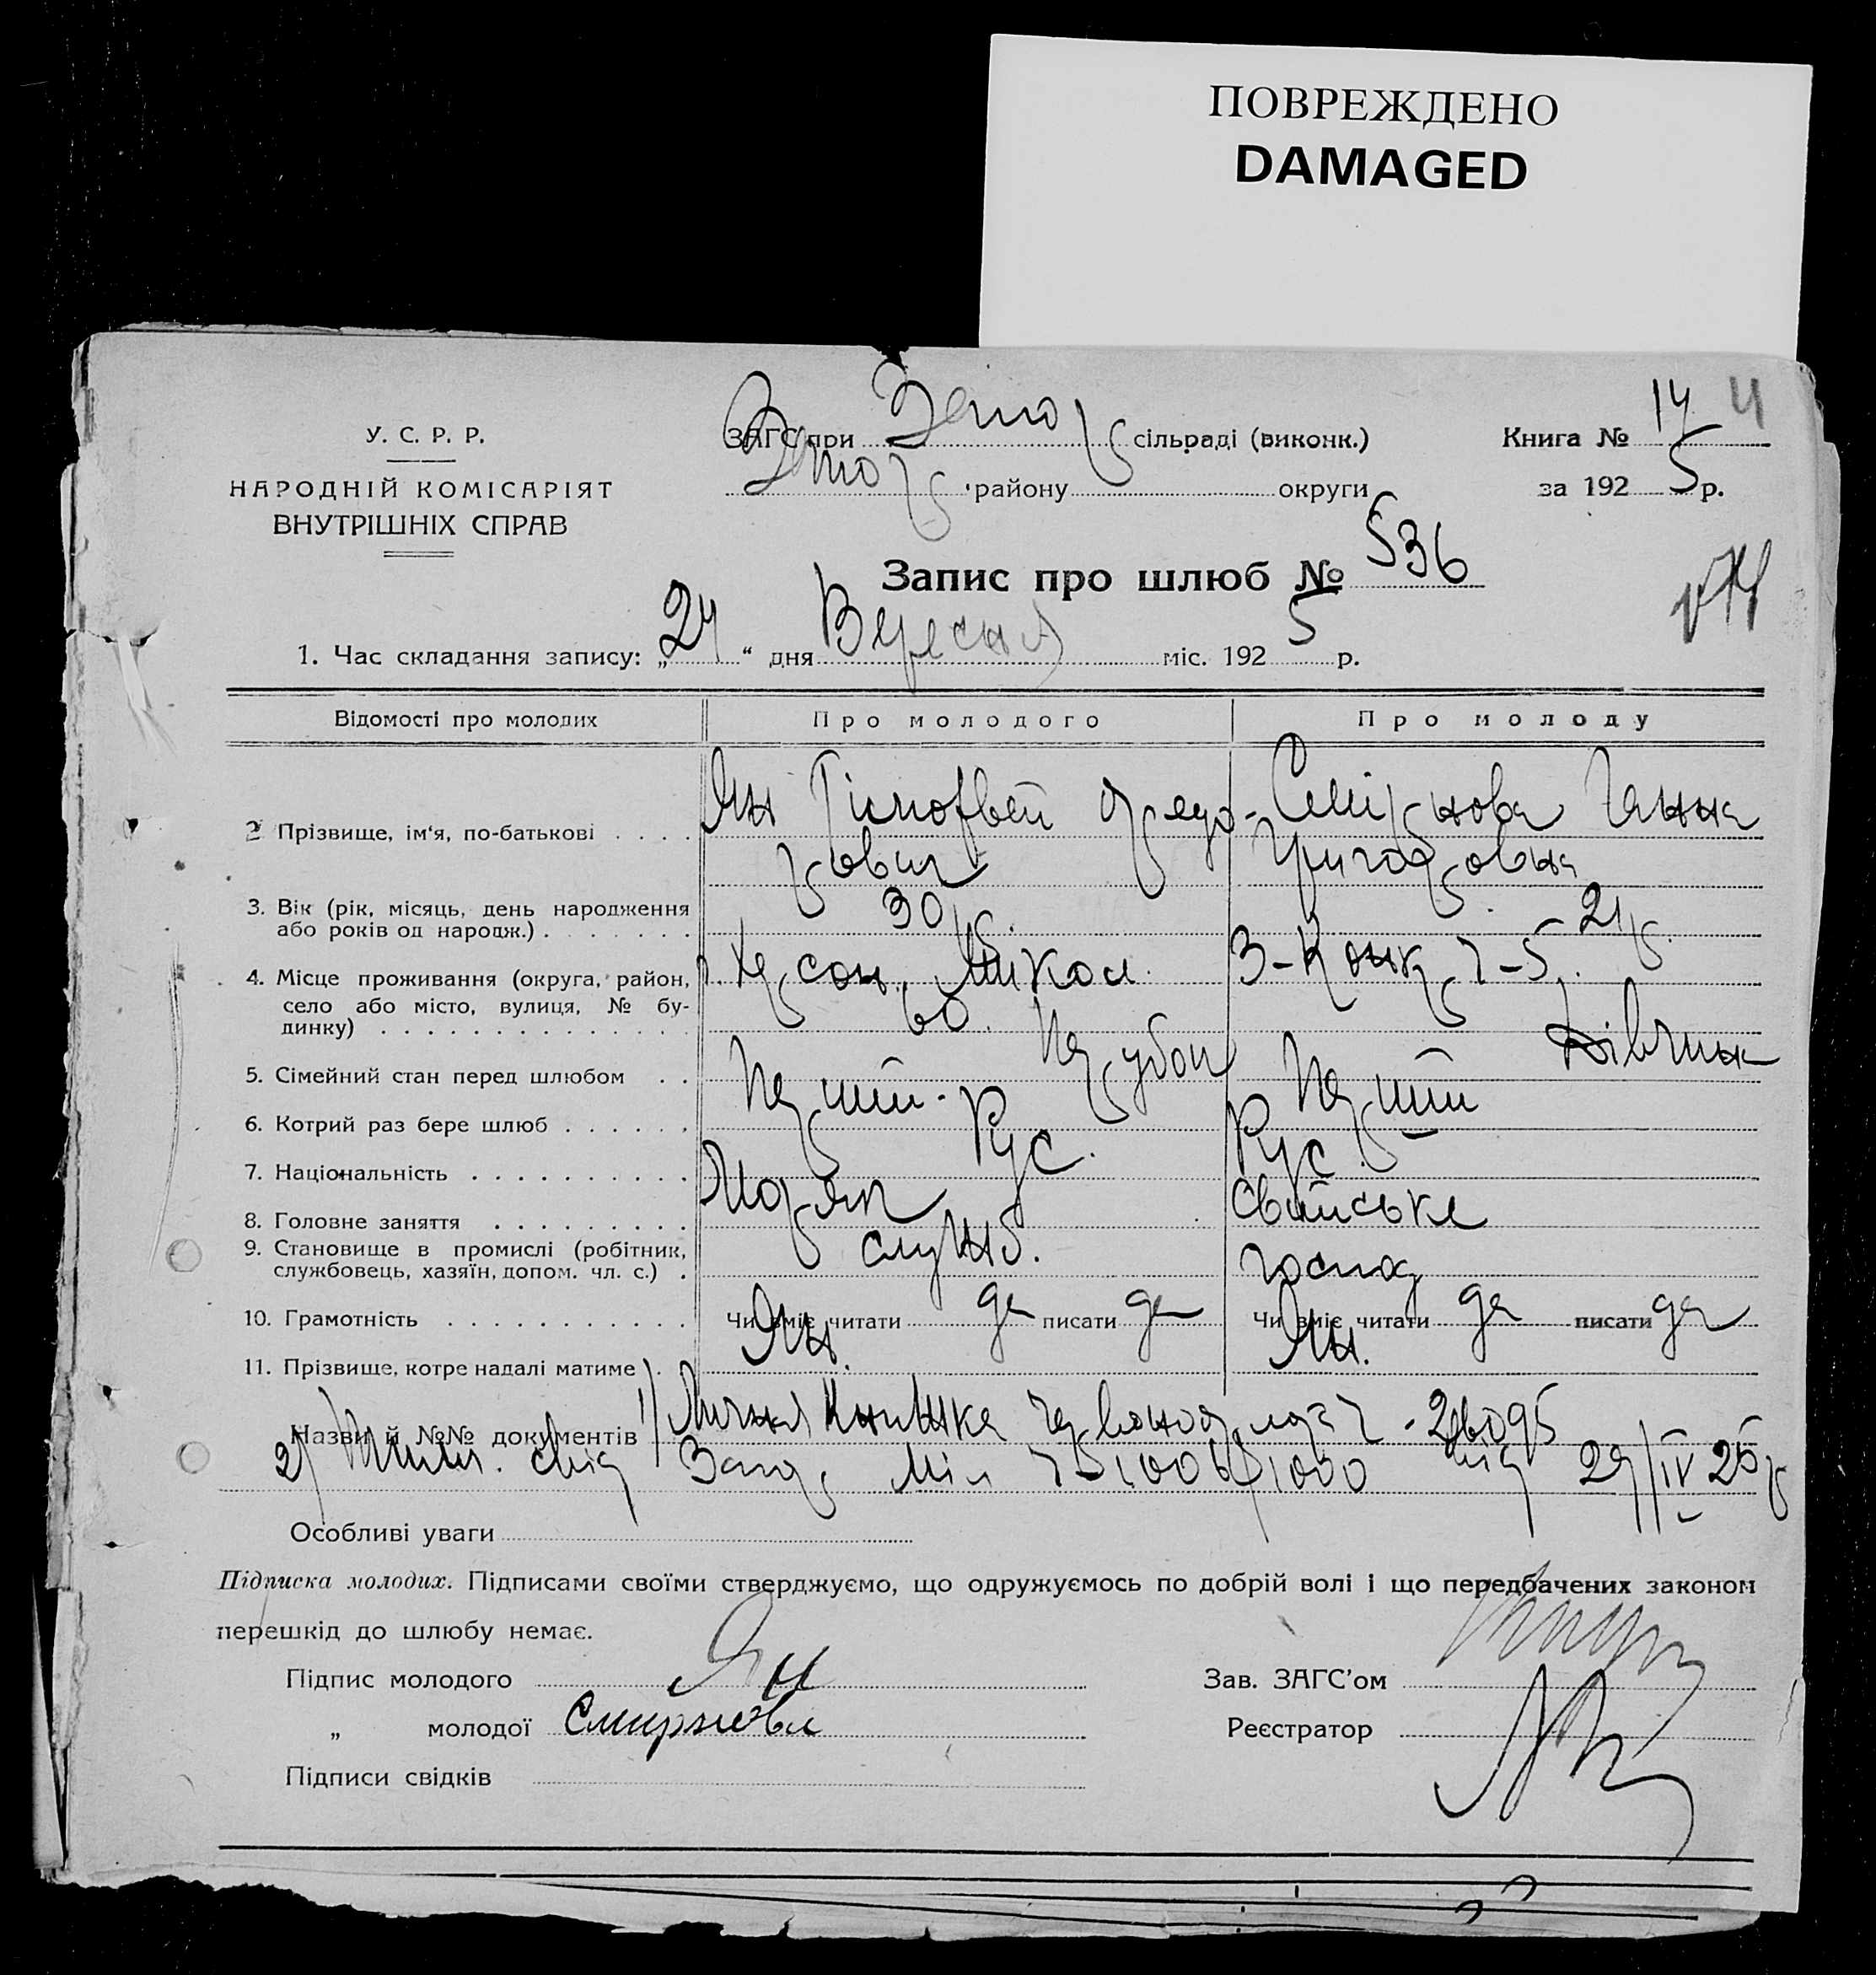 ПОВРЕЖДЕНО
DAMAGED
У. С. Р. Р.
НАРОДНІЙ КОМІСАРІЯТ
ВНУТРІШНІХ СПРАВ
ЗАГС при сільраді (виконк.)
району округи
Книга № 14 4
за 1925 р.
Запис про шлюб № 536
1. Час складання запису: „24“ дня Вересня міс. 1925 р.
Відомості про молодих Про молодого Про молоду
2 Прізвище, ім‘я, по-батькові . . . . Ян Тімофвей Федо- Смірнова Ганна
рович Григоровна
3. Вік (рік, місяць, день народження
або років од народж.) . . . . . . . 30 р. 21 р.
4. Місце проживання (округа, район,
село або місто, вулиця, № бу-
динку) . . . . . . . . . . . . . . Херсон, Микол. 60.
5. Сімейний стан перед шлюбом . . Парубок Дівчина
6. Котрий раз бере шлюб . . . . . . Перший. Перший
7. Національність . . . . . . . . . . Рус. Рус.
8. Головне заняття . . . . . . . . . Моряк Свійське
9. Становище в промислі (робітник,
службовець, хазяїн, допом. чл. с.) . служб. господ
10. Грамотність . . . . . . . . . . . Чи вміє читати да писати да Чи вміє читати да писати да
11. Прізвище, котре надалі матиме . Ян. Ян.
Назви й №№ документів 1) Лична Книжка
2)
Особливі уваги
Підписка молодих. Підписами своїми стверджуємо, що одружуємось по добрій волі і що передбачених законом
перешкід до шлюбу немає.
Підпис молодого Ян
Зав. ЗАГС’ом
„ молодої Смирнова
Реєстратор
Підписи свідків